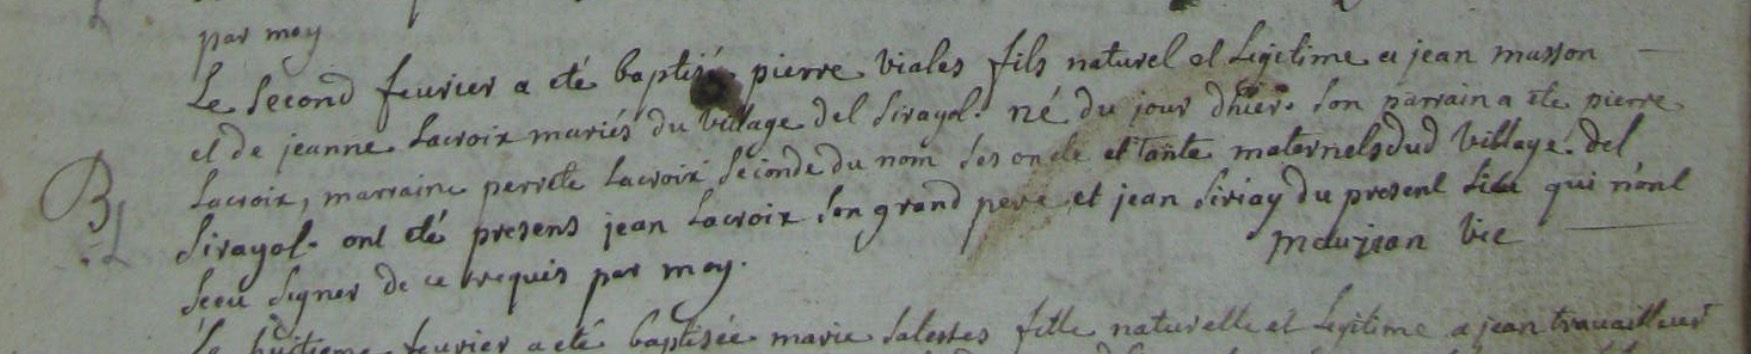 par moy
Le second feurier a eté baptisé pierre viales fils naturel et Legitime a jean masson
et de jeanne Lacroix mariés du village del sirayol. né du jour dhier. son parrain a ete pierre
Lacroix, marraine perrete Lacroix seconde du nom ses oncle et tante maternels dud village. del
B
sirayol. ont eté presens jean Lacroix son grand pere et jean siriay du present lieu qui n'ont
sceu signer de ce requis par moy. vic
Le huitieme feurier a eté baptisée marie salesses fille naturelle et Legitime a jean travailleur